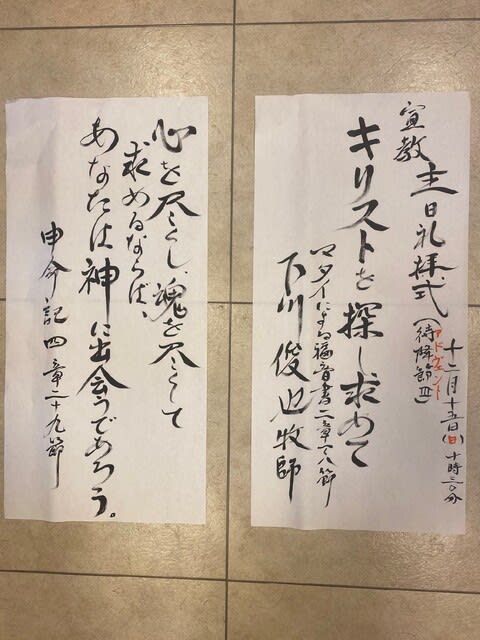 十二月十五日(日)十時三〇分
主日礼拝式(待降節Ⅲ)
アドヴェント
宣教
キリストを探し求めて
マタイによる福音書二章一~八節
下川俊也牧師
心を尽くし、魂を尽くして
求めるならば、
あなたは神に出会うであろう。
申命記四章二十九節